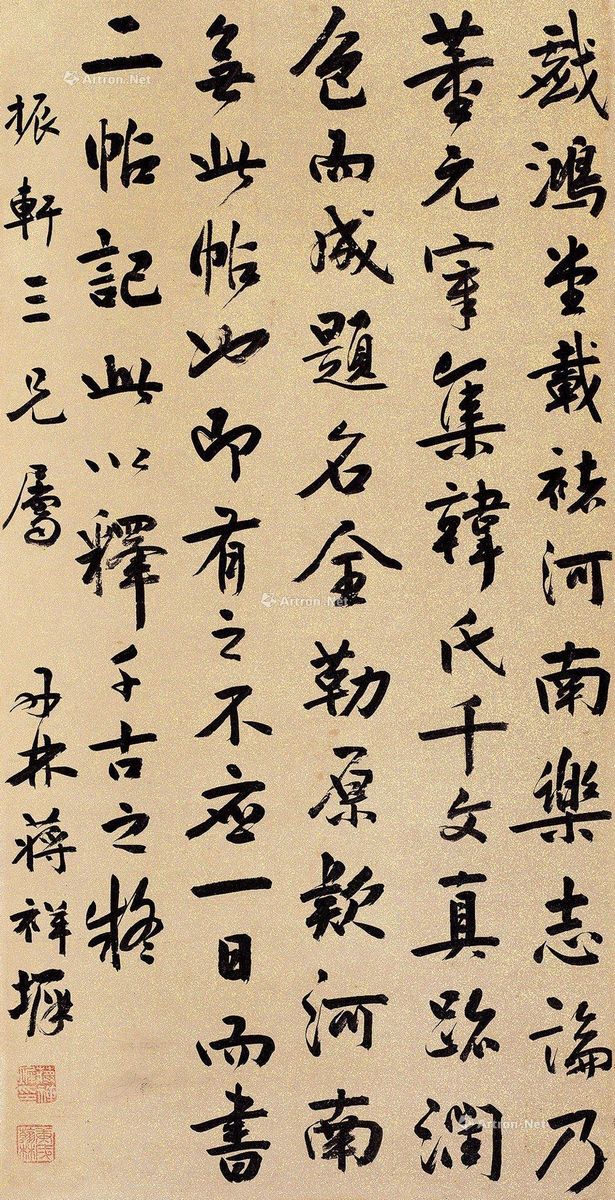 戲鴻堂載褚河南樂志論乃
董元宰集韓氏千文真跡潤
色而成題名全勒原款河南
無此帖也即有之不應一日而書
二帖記此以釋千古之疑
振軒三兄屬
林蔣祥墀
Artron.Net
Artron.Net
Artron.Net